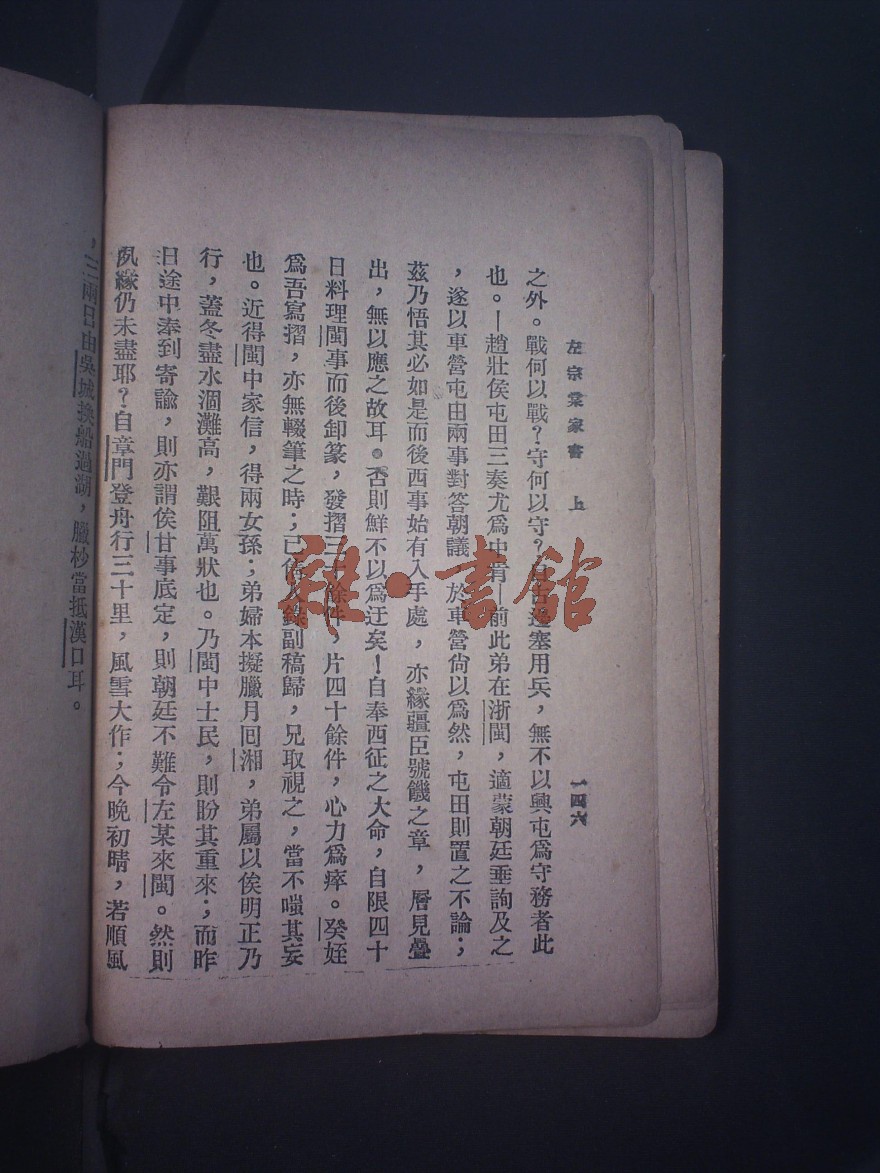 左宗棠家書 上 一四六
之外。戰何以戰？守何以守？自古邊塞用兵，無不以興屯爲守務者此
也。—趙壯侯屯田三奏尤爲中肯—前此弟在浙閩，適蒙朝廷垂詢及之
，遂以車營屯田兩事對答朝議，於車營尙以爲然，屯田則置之不論；
茲乃悟其必如是而後西事始有入手處，亦緣疆臣號饑之章，層見疊
出，無以應之故耳。否則鮮不以爲迂矣！自奉西征之大命，自限四十
日料理閩事而後卸篆，發摺三十餘件，片四十餘件，心力爲瘁。癸姪
爲吾寫摺，亦無輟筆之時；已倩人錄副稿歸，兄取視之，當不嗤其妄
也。近得閩中家信，得兩女孫；弟婦本擬臘月囘湘，弟屬以俟明正乃
行，蓋冬盡水涸灘高，艱阻萬狀也。乃閩中士民，則盼其重來；而昨
日途中奉到寄諭，則亦謂俟甘事底定，則朝廷不難令左某來閩。然則
夙緣仍未盡耶？自章門登舟行三十里，風雪大作；今晚初晴，若順風
，三兩日由吳城換船過湖，臘杪當抵漢口耳。
雜·書館